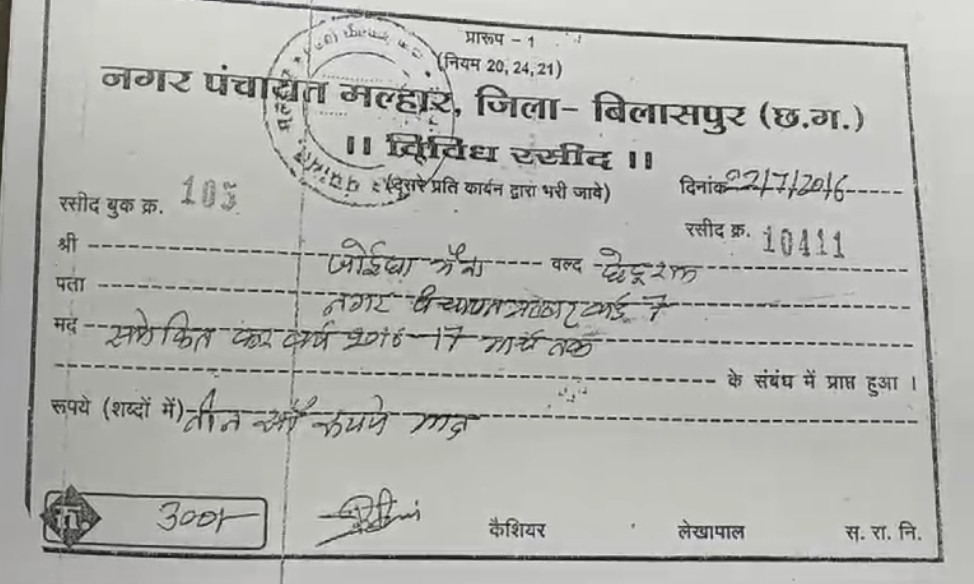 प्रारूप - 1
(नियम 20, 24, 21)
नगर पंचायत मल्हार, जिला- बिलासपुर (छ.ग.)
।। विविध रसीद ।।
(दुसरे प्रति कार्बन द्वारा भरी जावे)
दिनांक 22/7/2016
रसीद बुक क्र. 105
रसीद क्र. 10411
श्री वल्द छेदूराम
पता नगर पंचायत मल्हार वार्ड 7
मद समेकित कर वर्ष 2016-17 मार्च तक
के संबंध में प्राप्त हुआ ।
रूपये (शब्दों में) तीन सौ रूपये मात्र
300/-
कैशियर लेखापाल स. रा. नि.